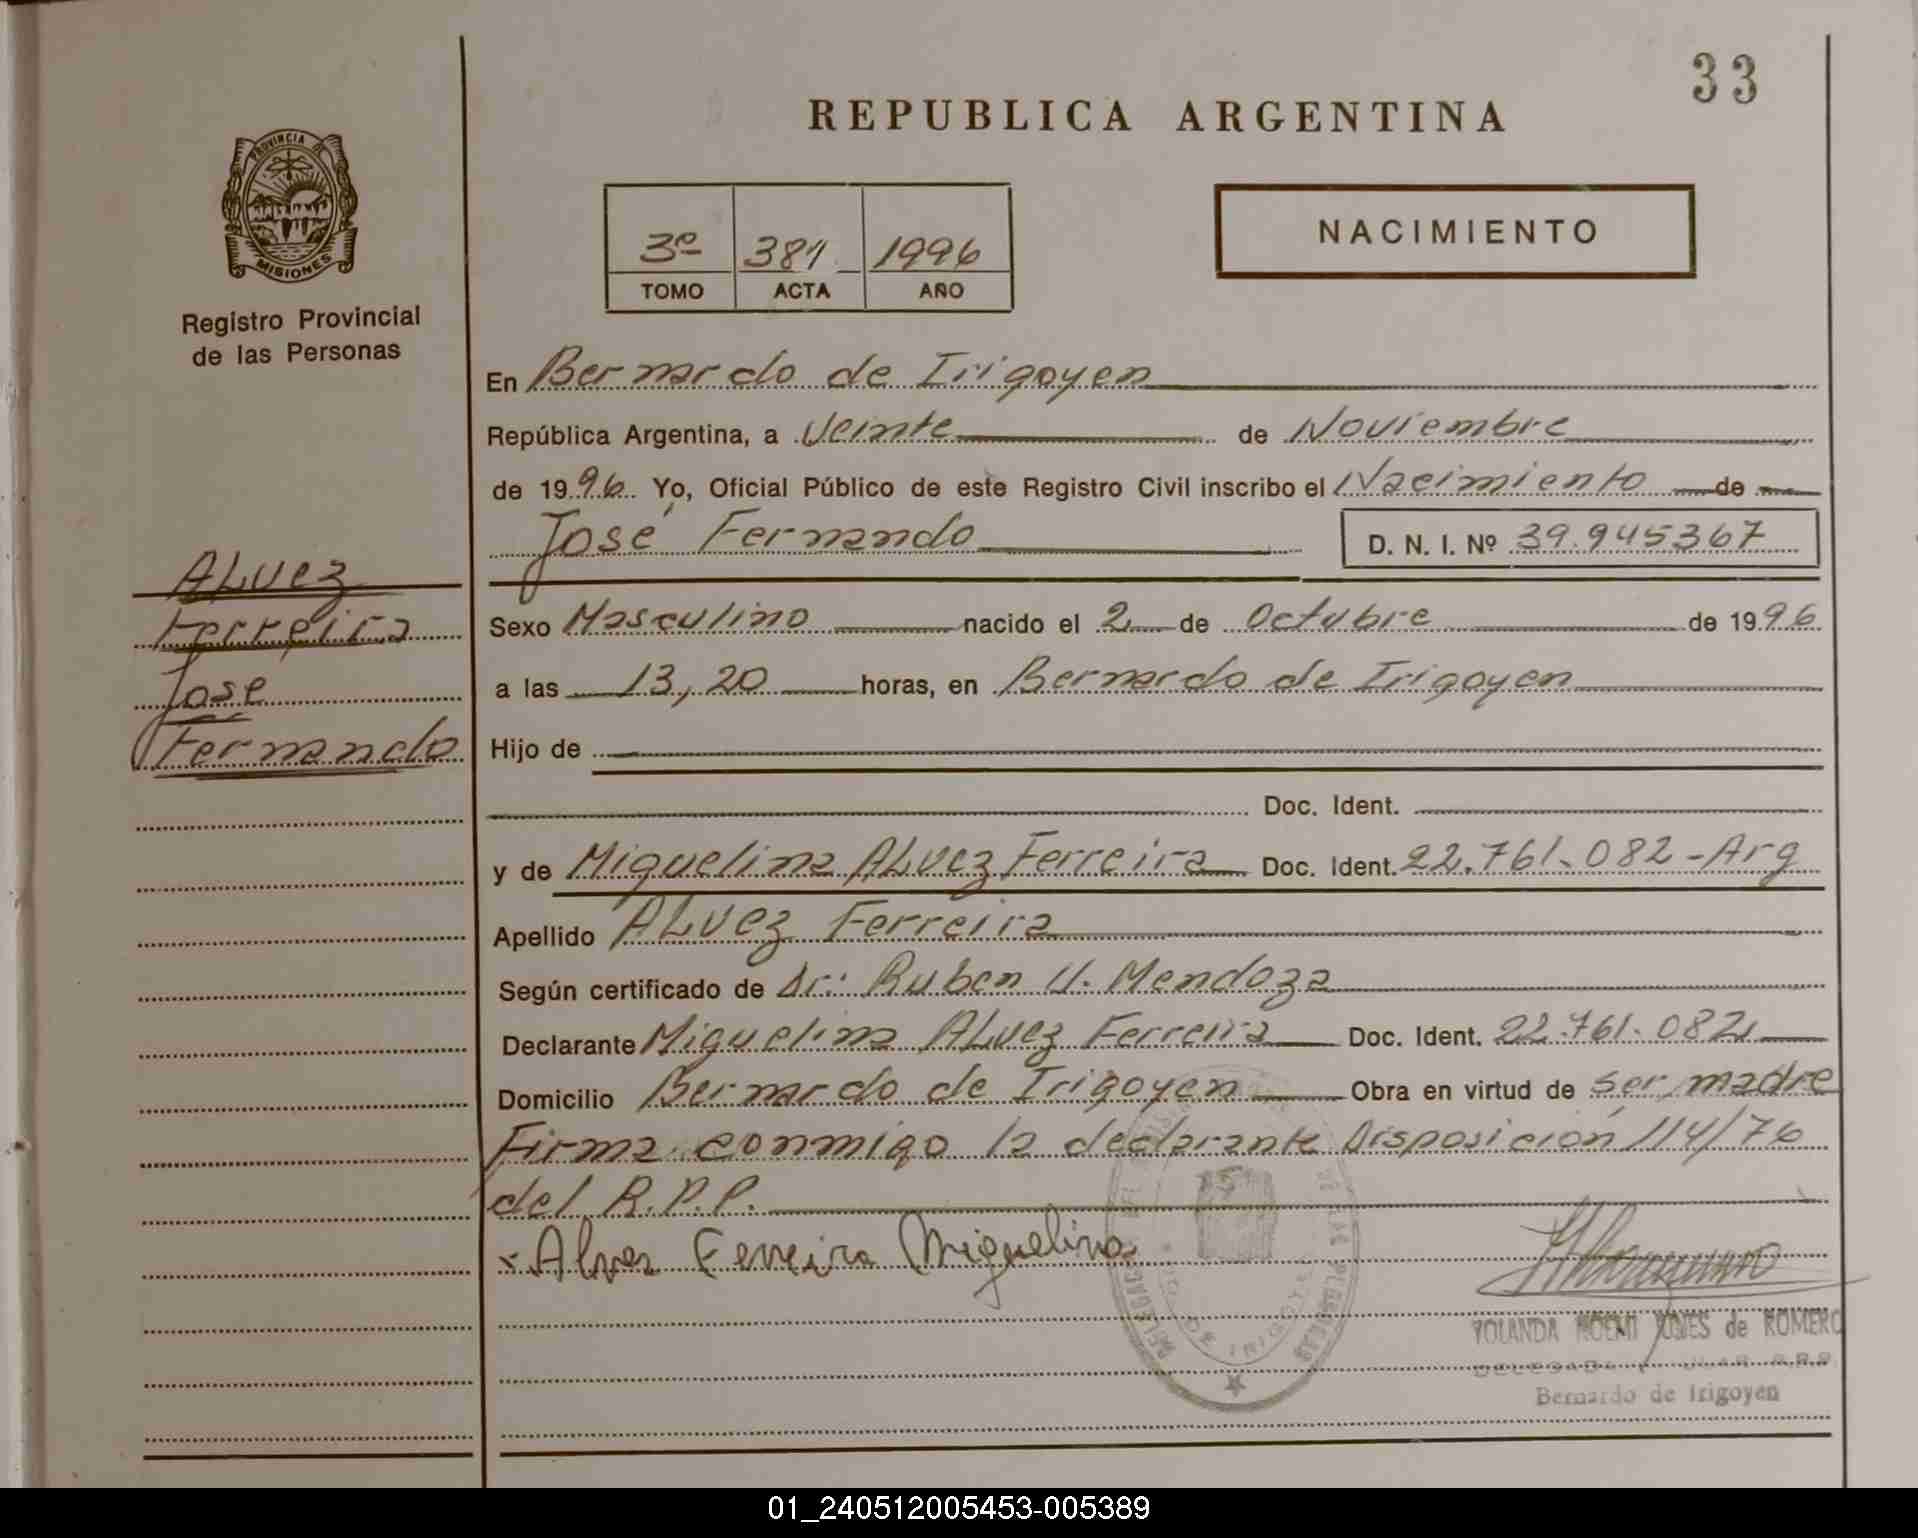 33
REPUBLICA ARGENTINA
PROVINCIA DE
MISIONES
Registro Provincial
de las Personas
3º 381 1996
TOMO ACTA AÑO
NACIMIENTO
En Bernardo de Irigoyen
República Argentina, a Veinte de Noviembre
de 1996 Yo, Oficial Público de este Registro Civil inscribo el Nacimiento de
José Fernando D. N. I. Nº 39.945367
ALvez
Ferreira
José
Fernando
Sexo Masculino nacido el 2 de Octubre de 1996
a las 13,20 horas, en Bernardo de Irigoyen
Hijo de
Doc. Ident.
y de Miguelina ALvez Ferreira Doc. Ident. 22.761.082-Arg
Apellido ALvez Ferreira
Según certificado de Dr: Ruben U. Mendoza
Declarante Miguelina ALvez Ferreira Doc. Ident. 22.761.082
Domicilio Bernardo de Irigoyen Obra en virtud de ser madre
Firma conmigo la declarante Disposición 114/76
del R.P.P.
x Alvez Ferreira Miguelina
YOLANDA NOEMI YONES de ROMERO
DELEGADA R.P.P.
Bernardo de Irigoyen
01_240512005453-005389